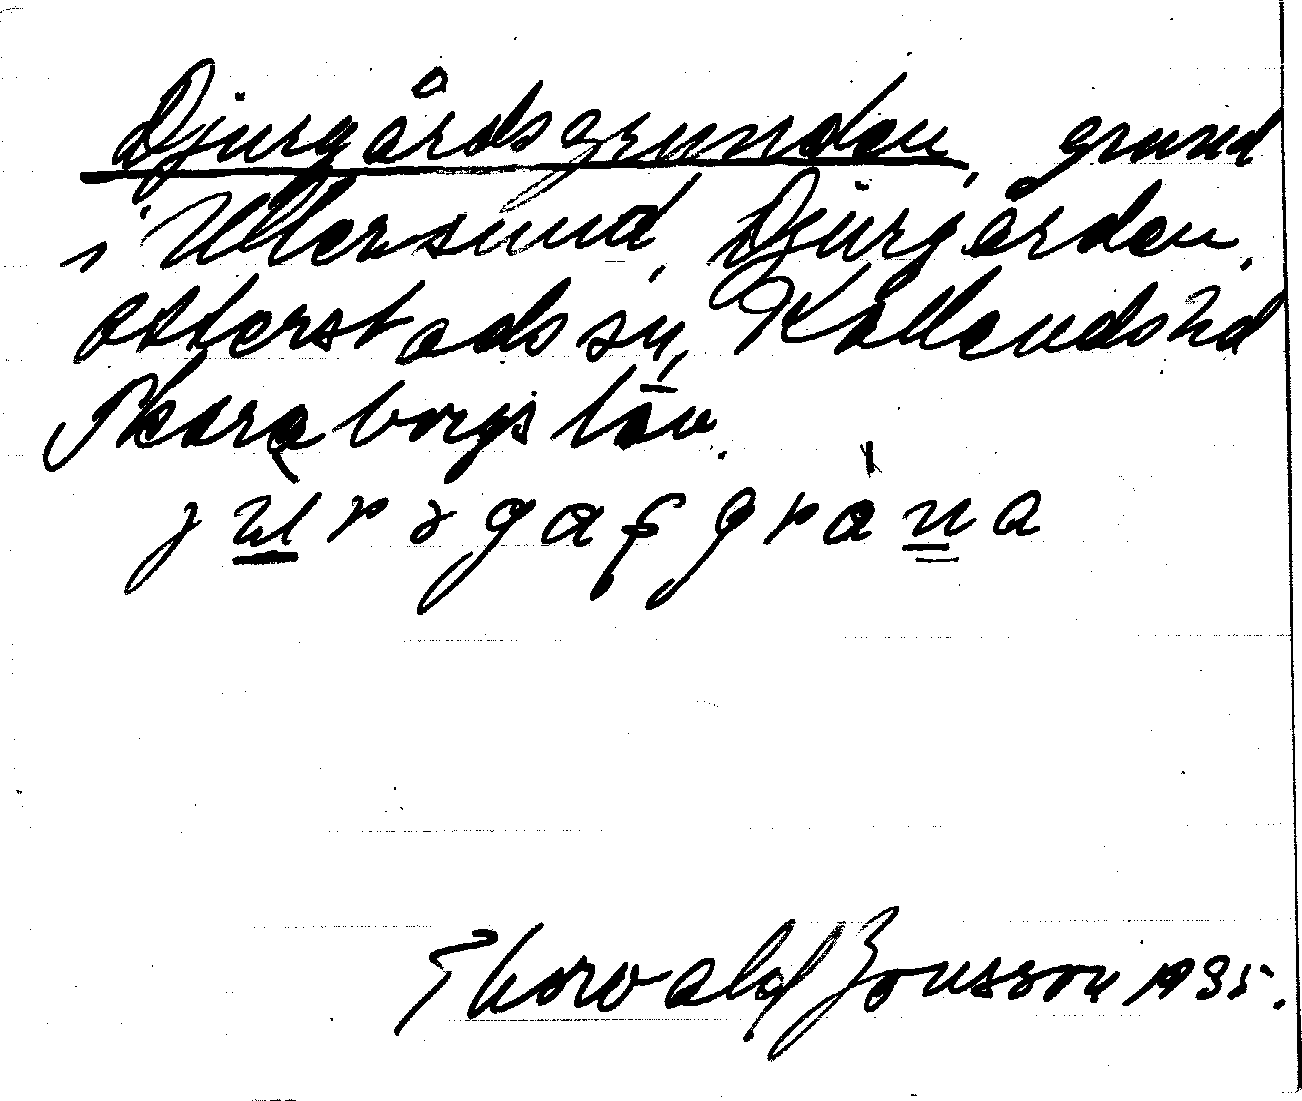 Djurgårdsgrunden, grund
i Ullersund, Djurgården,
Otterstads sn, Kållands hd
Skaraborgs län.
Thorvald Jonsson 1935.